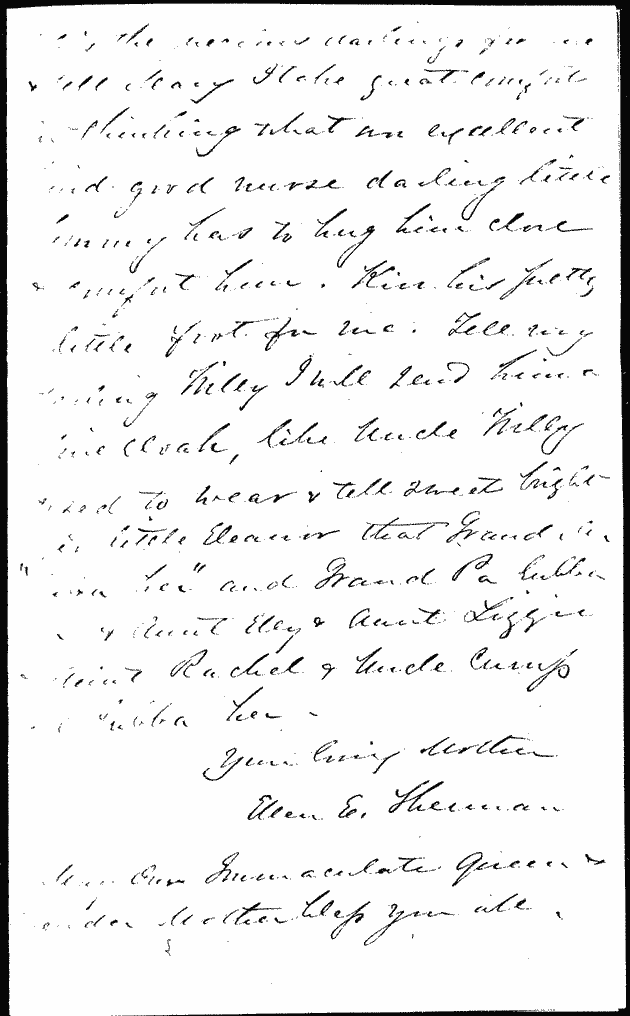 the precious darlings for me
& tell Mary I take great comfort
in thinking what an excellent
and good nurse darling little
has to hug him close
& comfort him. Kiss his pretty
little foot for me. Tell my
darling Willy I will send him a
cloak, like Uncle Willy
used to wear & tell sweet bright
little Eleanor that Grand
her" and Grand Pa lubba
& Aunt Elly & Aunt Lizzie
Aunt Rachel & Uncle Cump
lubba her -
Your loving Mother
Ellen E. Sherman
May Our Immaculate Queen &
tender Mother bless you all.